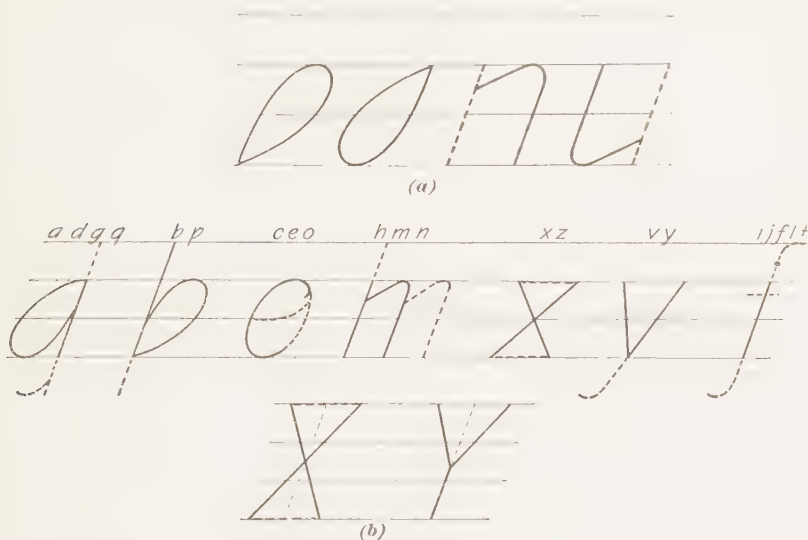 (a)
a d g q b p c e o h m n x z v y i j f l t
(b)